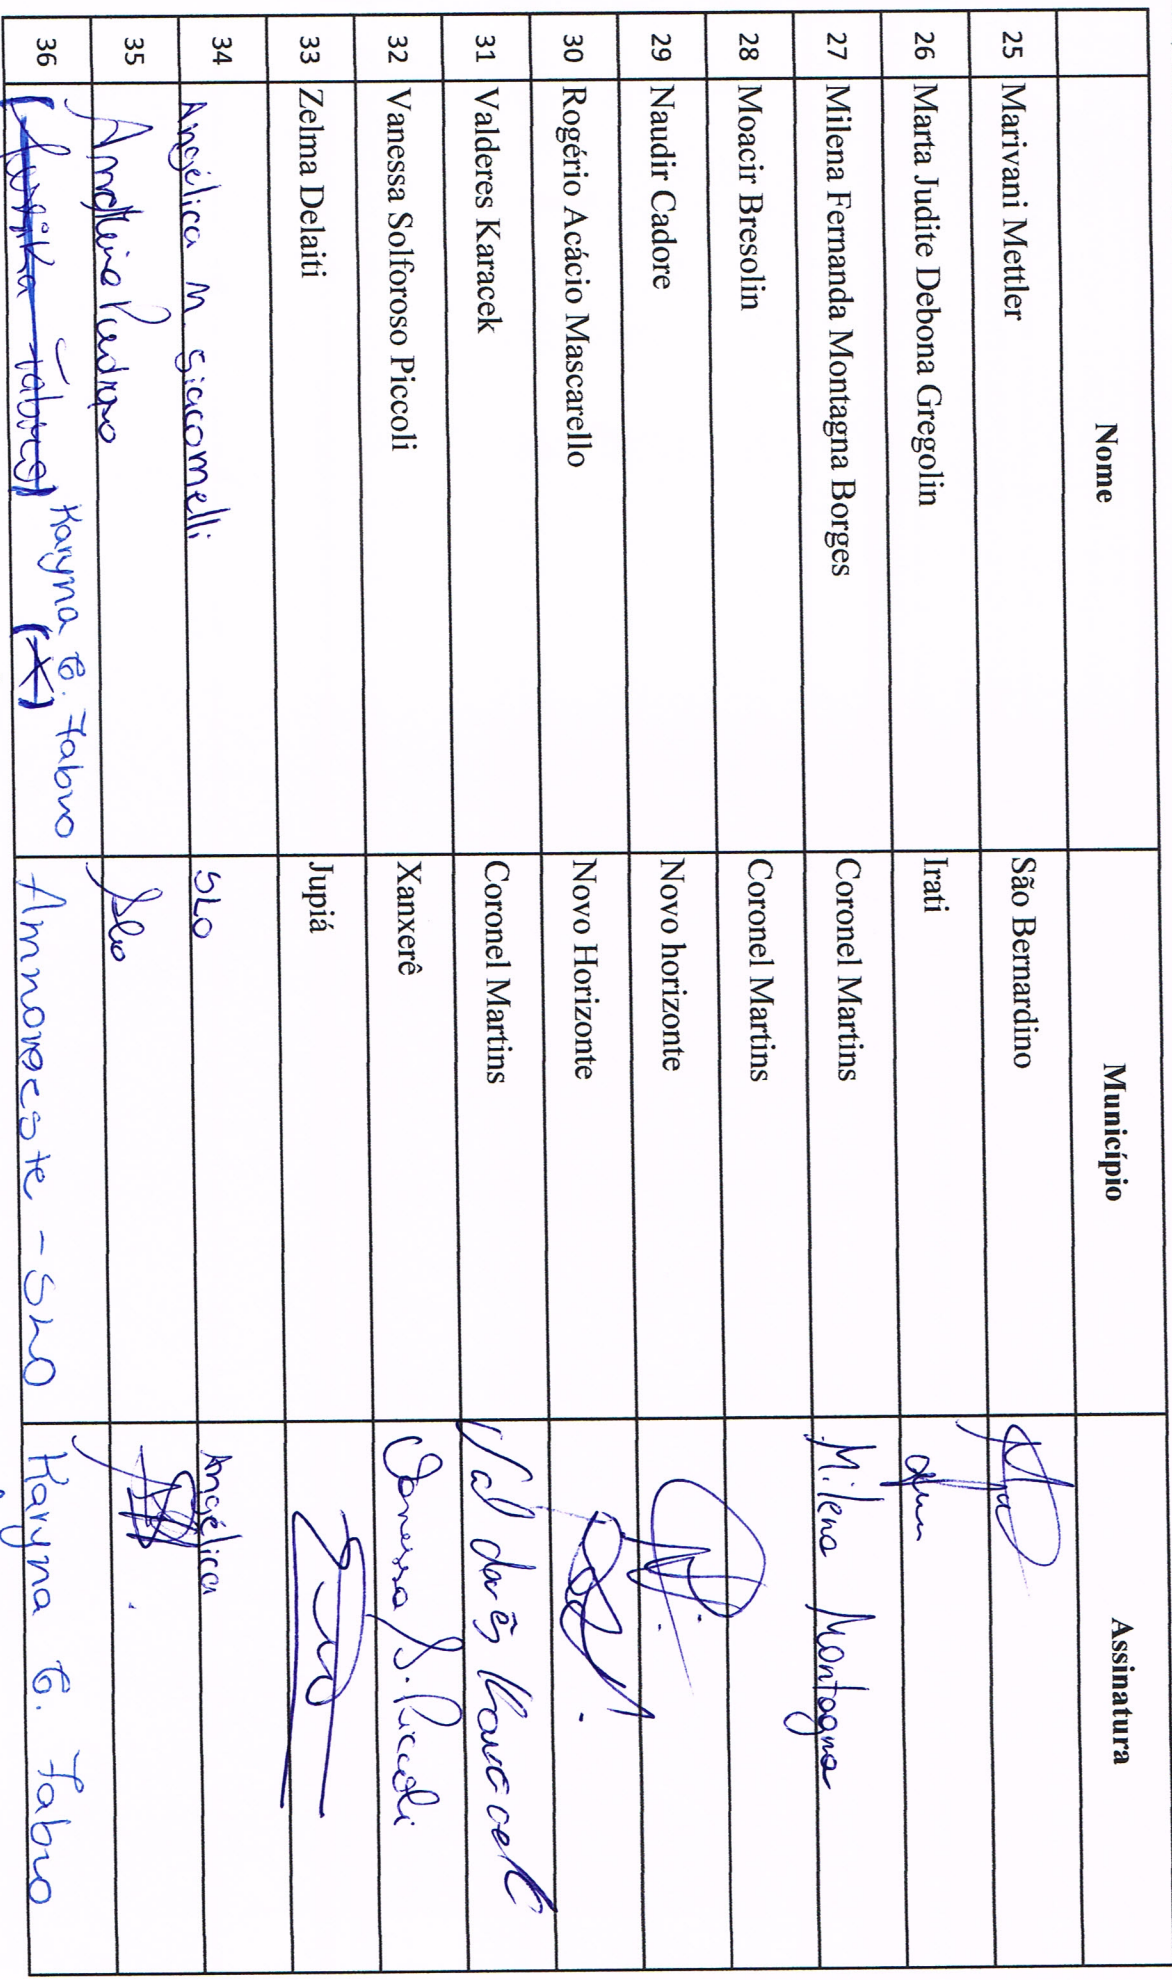 Nome Município Assinatura
25 Marivani Mettler São Bernardino
26 Marta Judite Debona Gregolin Irati
27 Milena Fernanda Montagna Borges Coronel Martins Milena Montagna
28 Moacir Bresolin Coronel Martins
29 Naudir Cadore Novo horizonte
30 Rogério Acácio Mascarello Novo Horizonte
31 Valderes Karacek Coronel Martins Valderês Karacek
32 Vanessa Solforoso Piccoli Xanxerê Vanessa S. Piccoli
33 Zelma Delaiti Jupiá
34 Angélica M Giacomelli SLO Angélica
35 SLO
36 Karyna G. Fabro (X) Amnoroeste - SLO Karyna G. Fabro